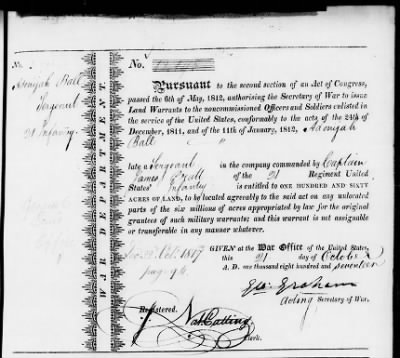 No.
Adonijah Ball
Sergeant
21 Infantry
WAR DEPARTMENT.
No.
Pursuant to the second section of an Act of Congress,
passed the 6th of May, 1812, authorising the Secretary of War to issue
Land Warrants to the noncommissioned Officers and Soldiers enlisted in
the service of the United States, conformably to the acts of the 24th of
December, 1811, and of the 11th of January, 1812, Adonijah
Ball
late a Sergeant in the company commanded by Captain
James of the 21 Regiment United
States' Infantry is entitled to ONE HUNDRED AND SIXTY
ACRES OF LAND, to be located agreeably to the said act on any unlocated
parts of the six millions of acres appropriated by law for the original
grantees of such military warrants; and this warrant is not assignable
or transferable in any manner whatever.
GIVEN at the War Office of the United States,
this 21 day of October
A. D. one thousand eight hundred and seventeen
Oct. 1817
Geo. Graham
Acting Secretary of War.
Registered.
Nat Cutting
Clerk.